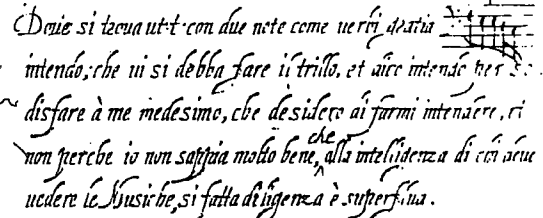 Doue si troua ut.t. con due note come uerbi gratia
intendo, che ui si debba fare il trillo, et dico intendo per so
disfare à me medesimo, che desidero di farmi intendere, et
non perche io non sappia molto bene, che alla intelligenza di chi deue
uedere le Musiche, si fatta diligenza è superflua.